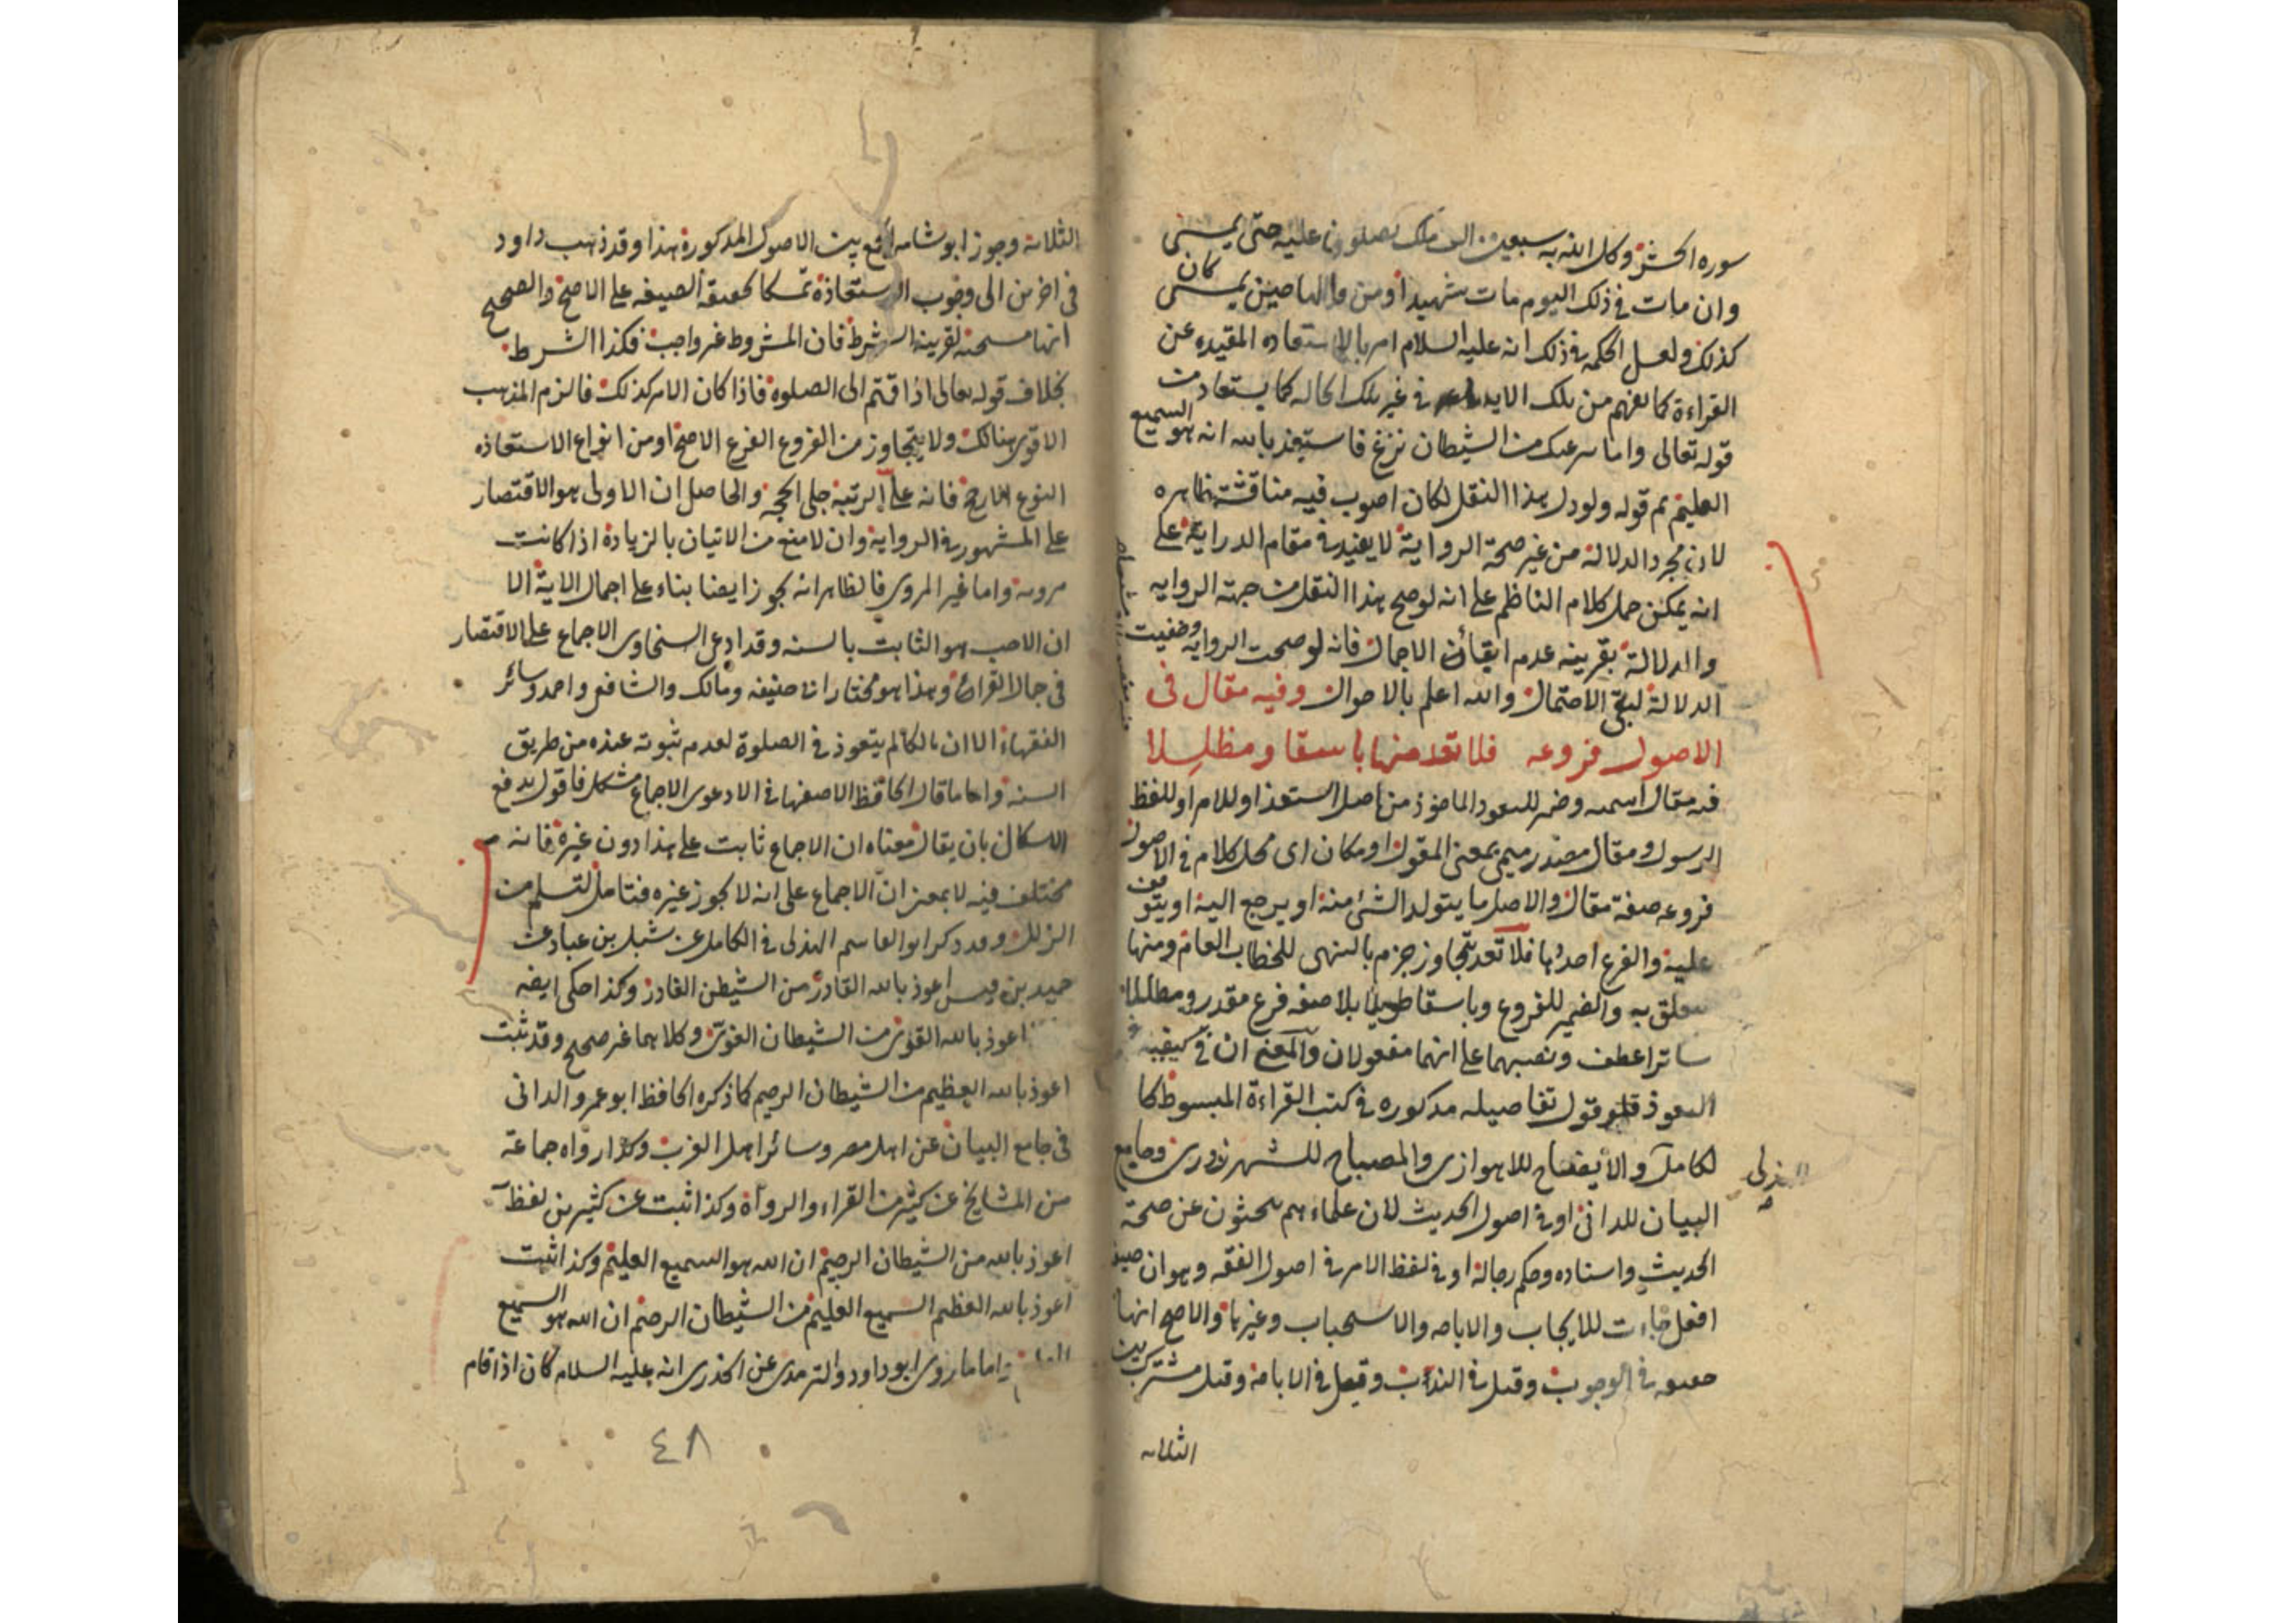 سورة الحشر وكل الله به سبعين الف ملك يصلون عليه حتى يمسي
وان مات في ذلك اليوم مات شهيدا ومن قالها حين يمسي كان
كذلك ولعل الحكمة في ذلك انه عليه السلام امر بالاستعاذه المقيده عن
القراءة كما يفهم من تلك الاية في غير تلك الحالة كما يستفاد من
قوله تعالى واما ينزغنك من الشيطان نزغ فاستعذ بالله انه هو السميع
العليم ثم قوله ولو دل هذا النقل لكان اصوب فيه مناقشة ظاهره
لان مجرد الدلالة من غير صحة الرواية لا يفيد في مقام الدراية على
انه يمكن حمل كلام الناظم على انه لو صح هذا النقل من جهة الروايه
والدلالة بقرينه عدم ابقاء الاجمال فانه لو صحت الروايه وخفيت
الدلالة لبقي الاحتمال والله اعلم بالاحوال وفيه مقال في
الاصول فروعه فلا تعد منها باسقا ومظللا
فيه مقال اسمية وضمير للتعوذ الماخوذ من اصل استعذ او للام او للفظ
الرسول ومقال مصدر ميمي بمعنى المقول او مكان اى محل كلام في الاصول
فروعه صفة مقال والاصل ما يتولد الشئ منه او يرجع اليه او يتوقف
عليه والفرع احدها فلا تعد تتجاوز جزم بالنهى للخطاب العام ومنها
متعلق به والضمير للفروع وباسقا طويلا بلا صفة فرع مقدر ومظللا
ساترا عطف ونصبهما على انهما مفعولان والمعنى ان في كيفية
التعوذ قول تفاصيله مذكوره في كتب القراءة المبسوطة كا
لكامل والايضاح للاهوازى والمصباح للشهرزورى وجامع
الهذلى
البيان للدانى او في اصول الحديث لان علماءهم يبحثون عن صحة
الحديث واسناده وحكم رجاله او في لفظ الامر في اصول الفقه وهو ان صيغة
افعل جاءت للايجاب والاباحه والاستحباب وغيرها والاصح انها
حقيقة في الوجوب وقيل في الندب وقيل في الاباحة وقيل مشترك بين
الثلاثه
الثلاثة وجوز ابو شامه الجمع بين الاصول المذكورة هذا وقد ذهب داود
في اخرين الى وجوب الاستعاذة تمسكا بحقيقة الصيغه على الاصح والصحيح
انها مستحبة لقرينة الشرط فان المشروط غير واجب فكذا الشرط
بخلاف قوله تعالى اذا قمتم الى الصلوة فاذا كان الامر كذلك فالزم المذهب
الاقوى هنالك ولا يتجاوز من الفروع الفرع الاصح او من انواع الاستعاذه
النوع الارجح فانه على الرتبة جلى الحجة والحاصل ان الاولى هو الاقتصار
على المشهور في الرواية وان لا منع من الاتيان بالزيادة اذا كانت
مروية واما غير المروى فالظاهر انه يجوز ايضا بناء على اجمال الاية الا
ان الاحب هو الثابت بالسنه وقد ادعى السخاوى الاجماع على الاقتصار
في حال القراءة وهذا هو مختار ابى حنيفه ومالك والشافعى واحمد وسائر
الفقهاء الا ان مالكا لم يتعوذ في الصلوة لعدم ثبوته عنده من طريق
السنه واما ما قال الحافظ الاصفهاني الا دعوى الاجماع مشكل فاقول يدفع
الاشكال بان يقال معناه ان الاجماع ثابت على هذا دون غيره فانه
مختلف فيه لا بمعنى ان الاجماع على انه لا يجوز غيره فتامل لتسلم من
الزلل وقد ذكر ابو القاسم الهذلى في الكامل عن شبل بن عباد عن
حميد بن قيس اعوذ بالله القادر من الشيطن الغادر وكذا حكى ايضه
اعوذ بالله القوى من الشيطان الغوى وكلاهما غير صحيح وقد ثبت
اعوذ بالله العظيم من الشيطان الرجيم كما ذكره الحافظ ابو عمرو الدانى
في جامع البيان عن اهل مصر وسائر اهل الغرب وكذا رواه جماعة
من المشايخ عن كثير من القراء والرواة وكذا ثبت عن كثير من لفظ
اعوذ بالله من الشيطان الرجيم ان الله هو السميع العليم وكذا ثبت
اعوذ بالله العظيم السميع العليم من الشيطان الرجيم ان الله هو السميع
العليم واما ما روى ابو داود والترمذى عن الخدرى انه عليه السلام كان اذا قام
٤٨